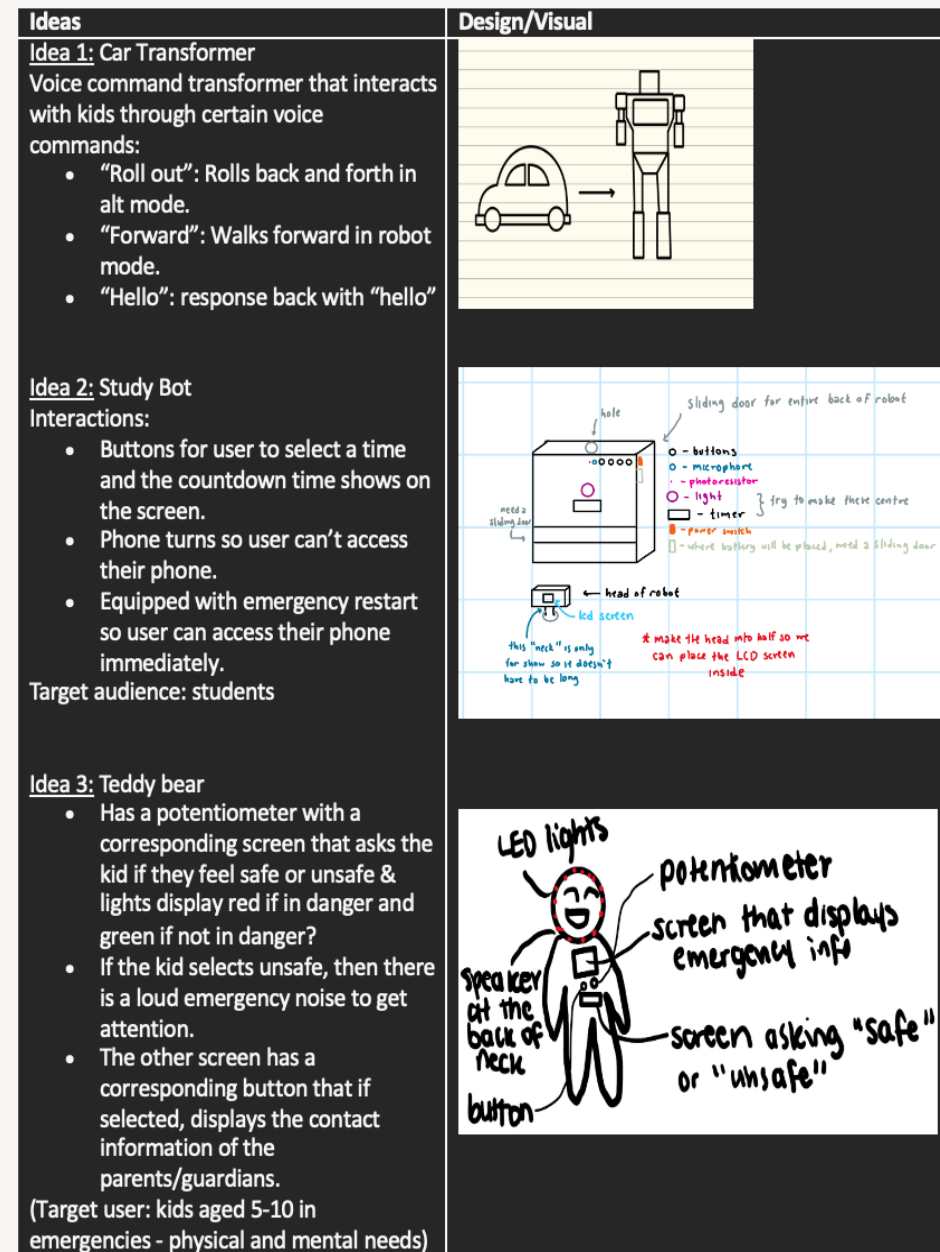 Ideas
Design/Visual
Idea 1: Car Transformer
Voice command transformer that interacts
with kids through certain voice
commands:
• “Roll out”: Rolls back and forth in
alt mode.
• “Forward”: Walks forward in robot
mode.
• “Hello”: response back with “hello”
Idea 2: Study Bot
Interactions:
• Buttons for user to select a time
and the countdown time shows on
the screen.
• Phone turns so user can’t access
their phone.
• Equipped with emergency restart
so user can access their phone
immediately.
Target audience: students
hole
sliding door for entire back of robot
- buttons
- microphone
- photoresistor
- light
- timer
} try to make these centre
- power switch
- where battery will be placed, need a sliding door
need a
sliding door
head of robot
lcd screen
this "neck" is only
for show so it doesn't
have to be long
* make the head into half so we
can place the LCD screen
inside
Idea 3: Teddy bear
• Has a potentiometer with a
corresponding screen that asks the
kid if they feel safe or unsafe &
lights display red if in danger and
green if not in danger?
• If the kid selects unsafe, then there
is a loud emergency noise to get
attention.
• The other screen has a
corresponding button that if
selected, displays the contact
information of the
parents/guardians.
(Target user: kids aged 5-10 in
emergencies - physical and mental needs)
LED lights
potentiometer
screen that displays
emergency info
speaker
at the
back of
neck
screen asking "safe"
or "unsafe"
button